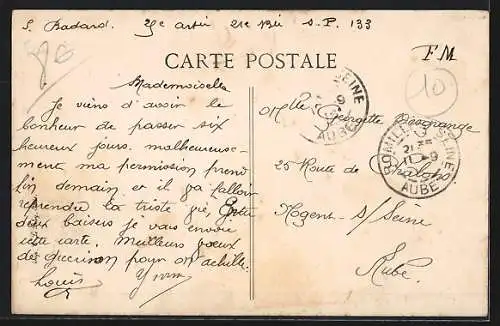 S. Badard. 25e artie 21e Bie S. P. 133
CARTE POSTALE
F M
10
Mademoiselle
Je viens d'avoir le
bonheur de passer six
heureux jours. malheureuse-
ment ma permission prend
fin demain et il va falloir
reprendre la triste vie, Entre
deux baisers je vais envoie
cette carte. Meilleurs voeux
de guerison pour on achille.
Louis
Yvonne
Melle Georgette
25 Route de
Nogent s/Seine
Aube
SEINE
9
AUBE
ROMILLY S SEINE
9
AUBE